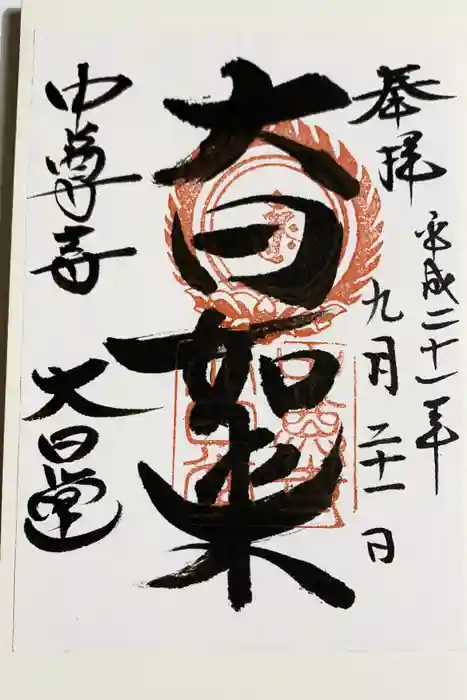 奉拝
平成二十一年
九月二十一日
大日如来
中尊寺
大日堂